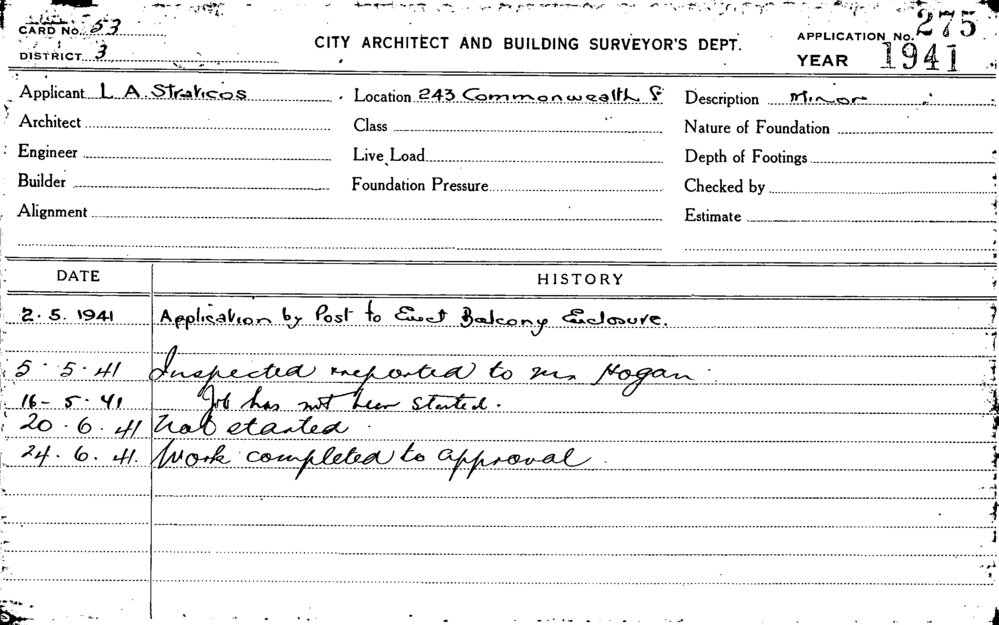 CARD NO. 53
DISTRICT 3
CITY ARCHITECT AND BUILDING SURVEYOR'S DEPT.
APPLICATION No. 275
YEAR 1941
Applicant L A. Straticos
Location 243 Commonwealth S
Description Minor
Architect
Class
Nature of Foundation
Engineer
Live Load
Depth of Footings
Builder
Foundation Pressure
Checked by
Alignment
Estimate
DATE HISTORY
2. 5. 1941 Application by Post to Erect Balcony Enclosure.
5. 5. 41 Inspected reported to Mr Hogan
16-5.41 Job has not been started.
20.6.41 Not started
24.6.41. Work completed to approval.